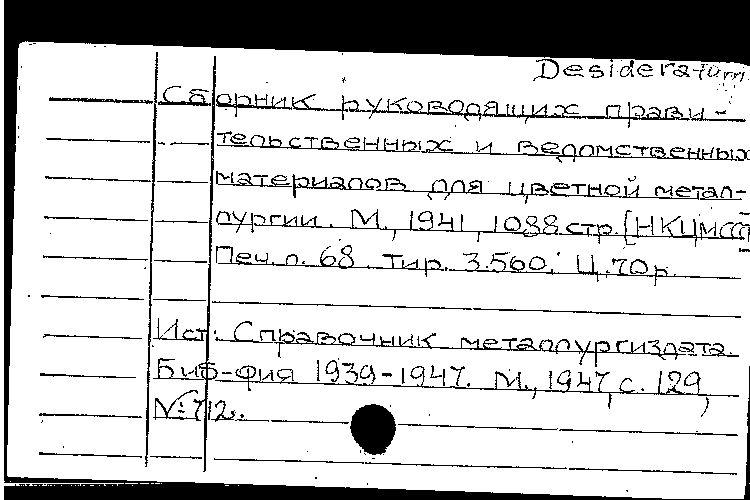 Desideratum
Сборник руководящих прави-
тельственных и ведомственных
материалов для цветной метал-
лургии. М., 1941, 1088 стр. [НКЦМССР]
Печ. л. 68. Тир. 3.560. Ц. 70 р.
Ист: Справочник металлургиздата.
Биб-фия 1939-1947. М., 1947, с. 129,
№ 712.